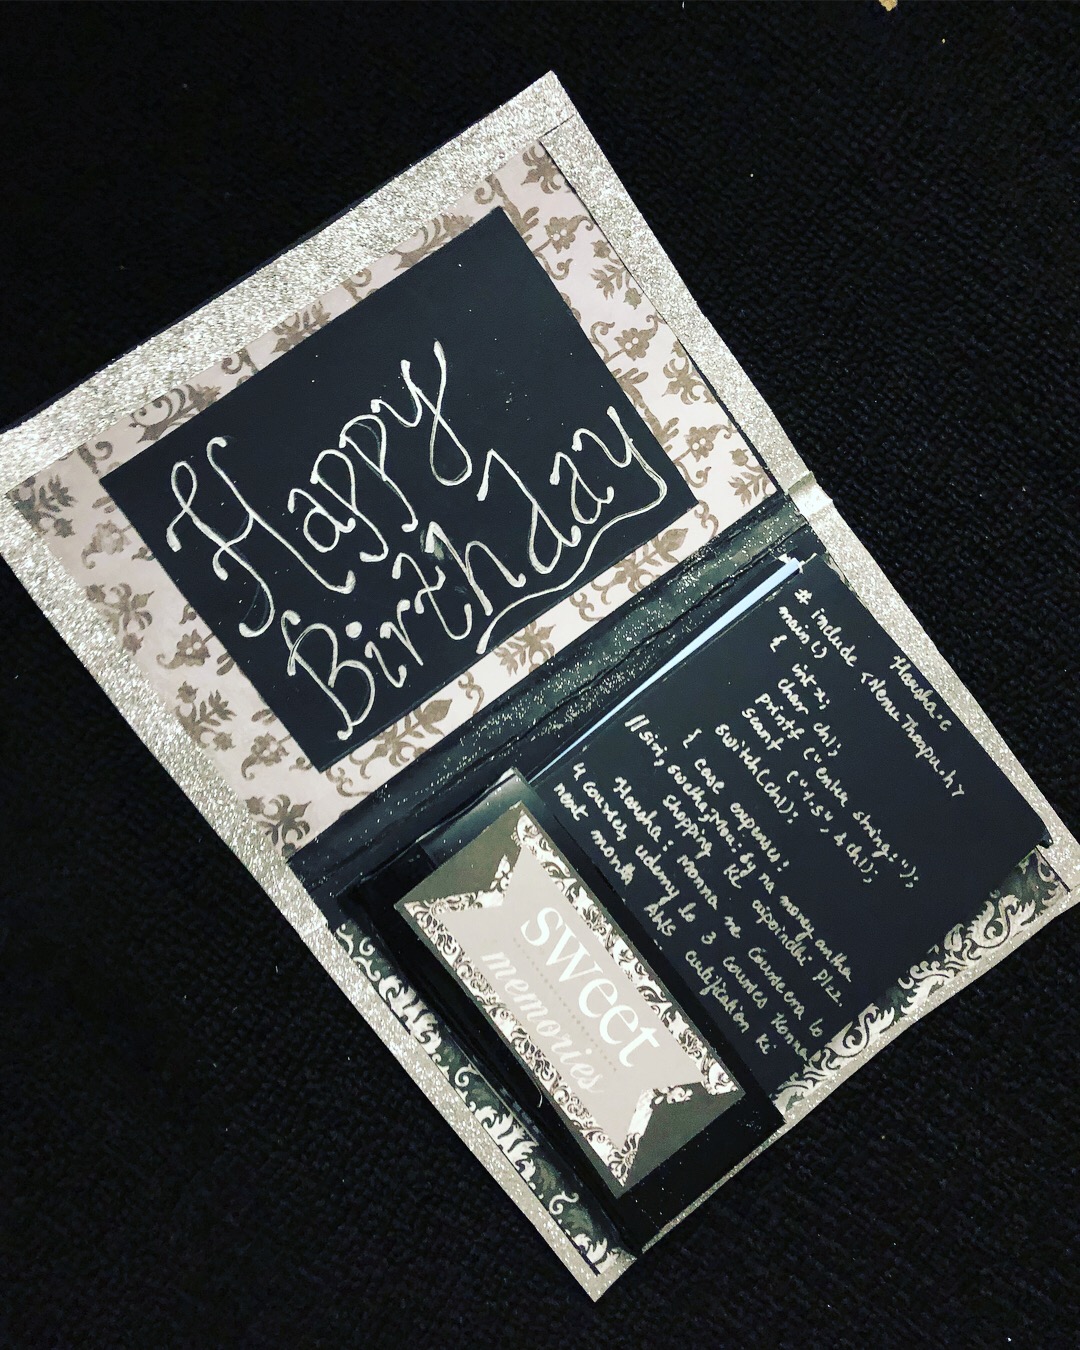 Happy
Birthday
Harsha.c
# include <Nenu Thopu.h>
main()
{ int x;
char ch1;
printf ("enter string:");
scanf ("%s", &ch1);
switch(ch1);
{ case expenses:
//siri, swetha, Mou: ey na money antha
shopping ki aipoindhi plzz
Harsha: Monna ne Coursera lo
4 Courses, udemy lo 3 courses konna
next month AWS certification ki
sweet
memories